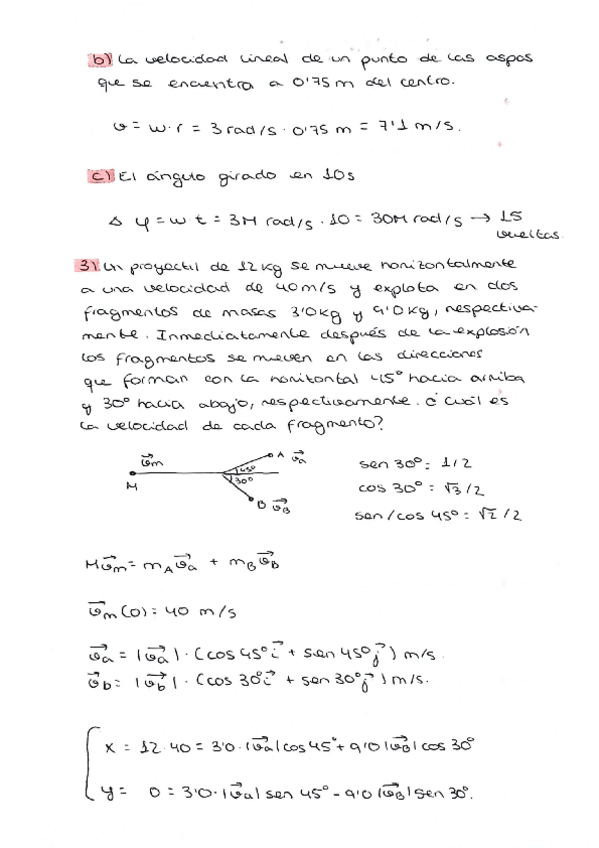 b) La velocidad lineal de un punto de las aspas
que se encuentra a 0'75 m del centro.
v = w · r = 3 rad/s · 0'75 m = 7'1 m/s.
c) El ángulo girado en 10s
Δ φ = w t = 3Π rad/s · 10 = 30Π rad/s → 15
vueltas.
3) Un proyectil de 12 kg se mueve horizontalmente
a una velocidad de 40 m/s y explota en dos
fragmentos de masas 3'0 kg y 9'0 kg, respectiva-
mente. Inmediatamente después de la explosión
los fragmentos se mueven en las direcciones
que forman con la horizontal 45° hacia arriba
y 30° hacia abajo, respectivamente. ¿Cuál es
la velocidad de cada fragmento?
v⃗m
M
45°
30°
A v⃗a
B v⃗B
sen 30° : 1/2
cos 30° : √3/2
sen/cos 45° : √2/2
M v⃗m = mA v⃗a + mB v⃗B
v⃗m (0) : 40 m/s
v⃗a = |v⃗a| · (cos 45° i⃗ + sen 45° j⃗) m/s.
v⃗b = |v⃗b| · (cos 30° i⃗ + sen 30° j⃗) m/s.
x = 12 · 40 = 3'0 · |v⃗a| cos 45° + 9'0 |v⃗B| cos 30°
y = 0 = 3'0 · |v⃗a| sen 45° - 9'0 |v⃗B| sen 30°.